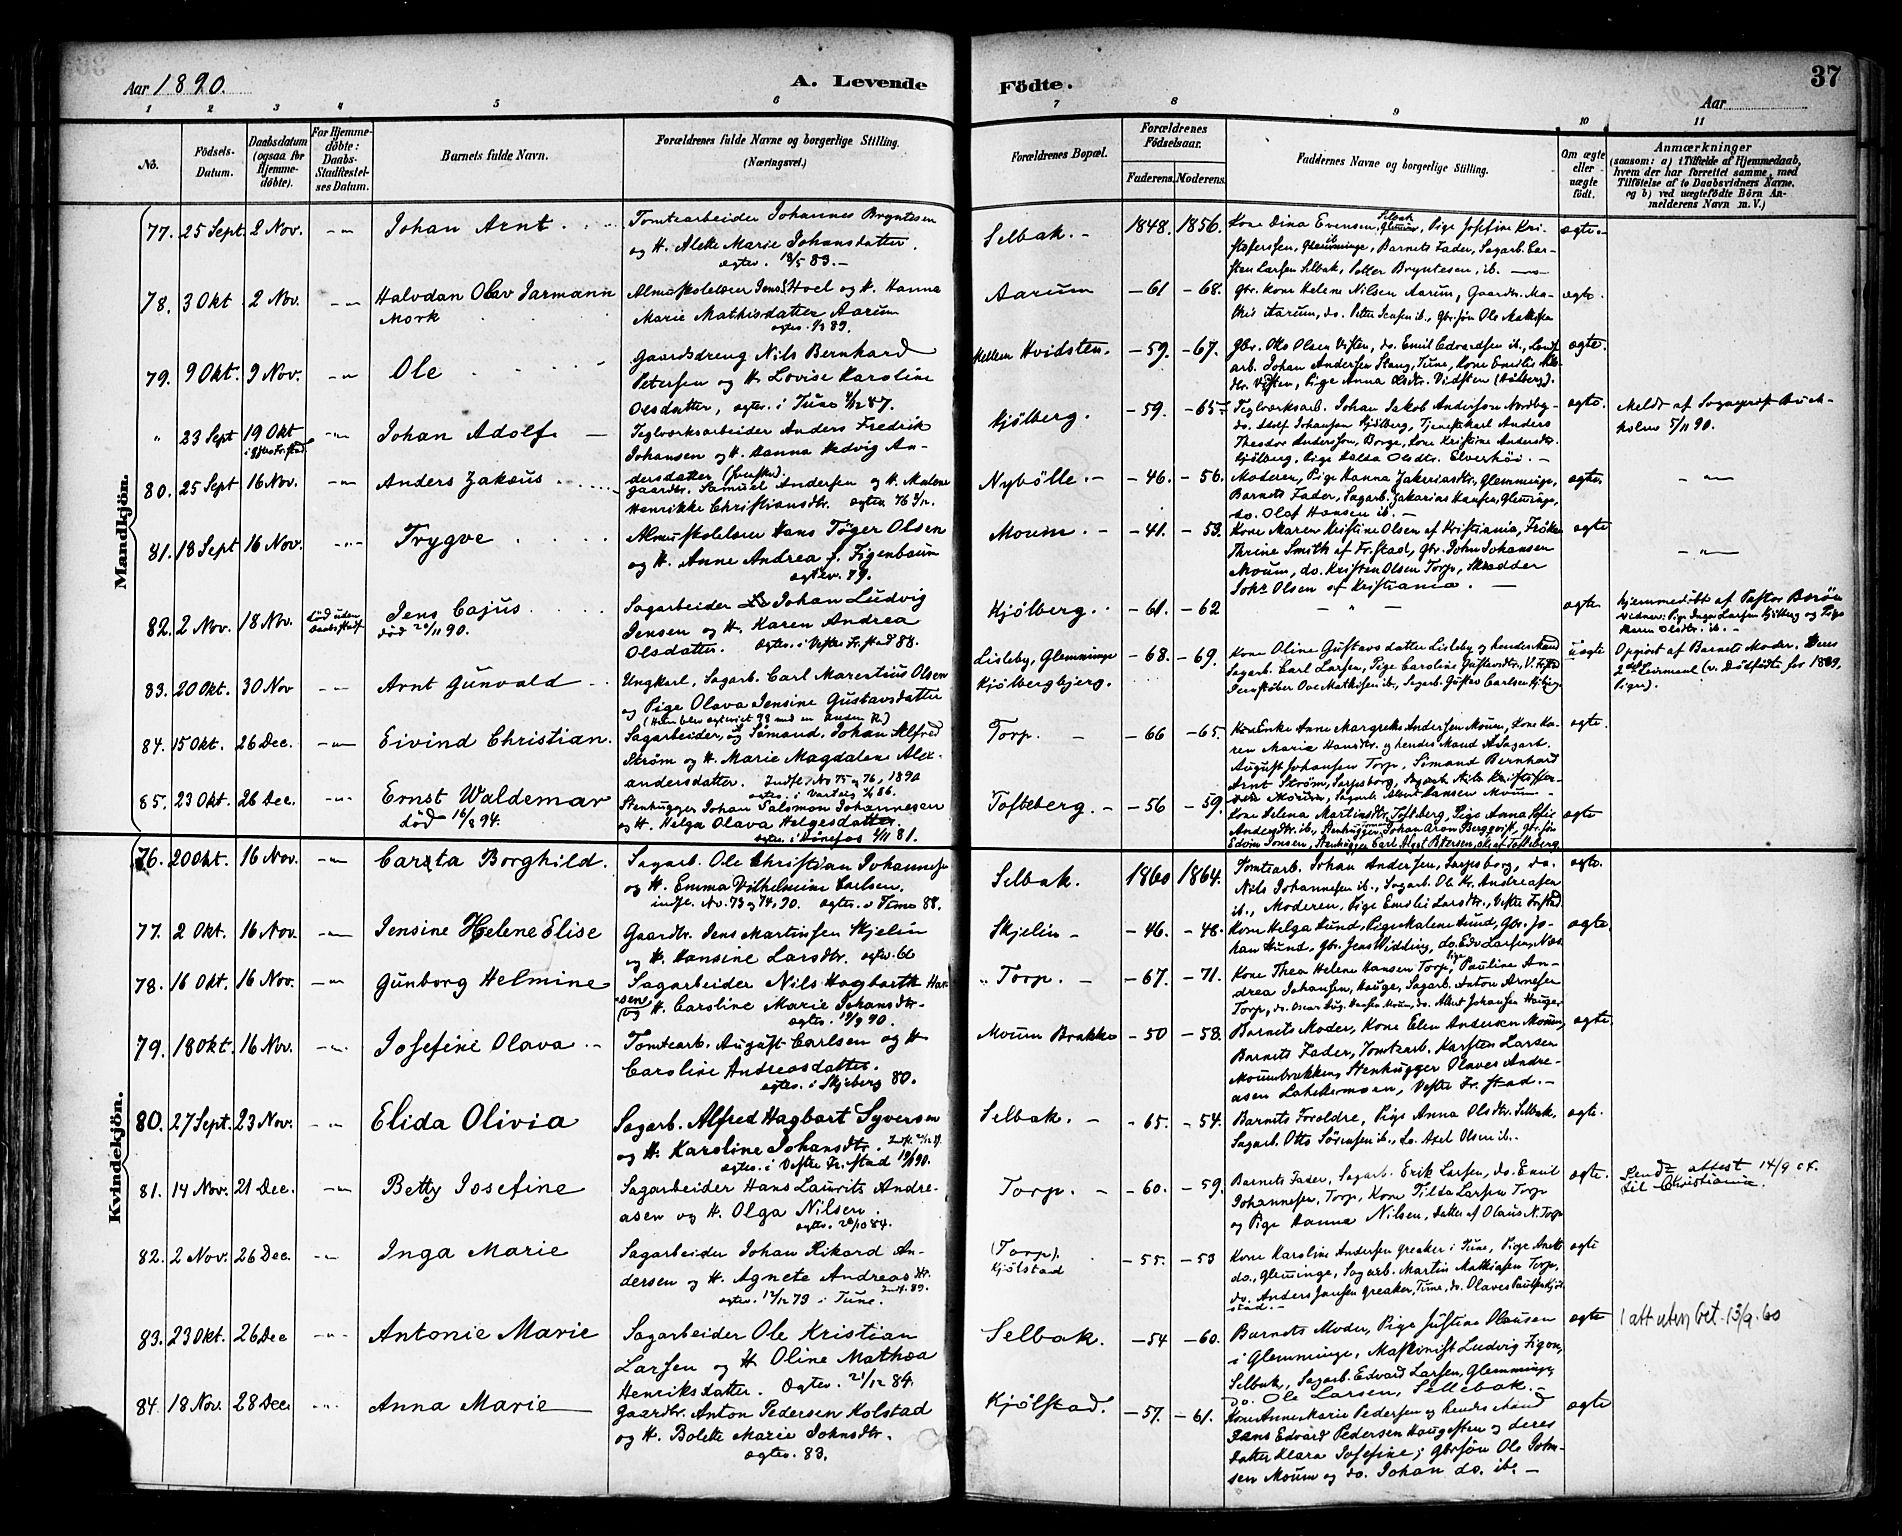 Aar 1890.
A. Levende
Födte.
37
Aar
1 2 3 4 5 6 7 8 9 10 11
No.
Födsels-Datum.
Daabsdatum (ogsaa for Hjemme-döbte).
For Hjemme-döbte: Daabs-Stadfæstel-ses Datum.
Barnets fulde Navn.
Forældrenes fulde Navne og borgerlige Stilling. (Næringsvei.)
Forældrenes Bopæl.
Forældrenes Födselsaar.
Faderens. Moderens.
Faddernes Navne og borgerlige Stilling.
Om ægte eller uægte födt.
Anmærkninger
(saasom: a) i Tilfælde af Hjemmedaab,
hvem der har forrettet samme, med
Tilföielse af to Daabsvidners Navne.
og b) ved uægtefödte Börn An-
melderens Navn m. V.)
Mandkjön.
77. 25 Sept. 2 Nov. -"- Johan Arnt
Tomtearbeider Johannes Bryntesen
og H. Alette Marie Johansdatter.
ægtev. 18/5 83.
Selbak. 1848. 1856.
Kone Dina Evensen, Selbak, Pige Josefine Kri-
stofersen, Glemminge, Barnets Fader, Sagarb. Car-
sten Larsen Selbak, Petter Bryntesen, ib.
ægte.
78. 3 Okt. 2 Nov. -"- Halvdan Olav Jarmann
Mork
Almuskolelærer Jens Hoel og H. Hanna
Marie Mathisdatter Aarum
Aarum -61 -68.
Gbr. Kone Helene Nilsen Aarum, Gaardbr. Ma-
this Aarum, do. Peter ib., Gbr. søn Ole Mathisen
ægte.
79. 9 Okt. 9 Nov. -"- Ole
Gaardsdreng Nils Bernhard
Petersen og H. Lovise Karoline
Olsdatter, ægtev. i Tune 87.
Hvidsten. -59. -67.
Gbr. Otto Olsen Visten, do. Emil Edvardsen ib.,
arb. Johan Andersen Stang, Tune, Kone Emilie
Visten, Pige Anna Olsdtr. Vidsten
ægte.
" 23 Sept 19 Okt -"- Johan Adolf
Teglværksarbeider Anders Fredrik
Johansen og H. Hanna Hedvig An-
dersdatter
Kjölberg. -59. -65.
Teglværksarb. Johan Jakob Andersen Nordby,
do. Adolf Johansen Kjölberg, Tjenestekarl Anders
Theodor Andersen, Borge, Kone Kristine Andersdtr.
Kjölberg, Pige Hulda Olsdtr. Elverhöi.
ægte.
Meldt af Sogneprest
5/11 90.
80. 25 Sept 16 Nov. -"- Anders Zakæus
Gaardbr. Samuel Andersen og H. Malene
Henrikke Christiansdtr. ægtev. 76
Nybölle. -46. -56.
Moderen, Pige Hanna Glemminge,
Barnets Fader, Sagarb. Zakarias Hansen, Glemminge,
do. Olaf Hansen ib.
ægte.
81. 18 Sept 16 Nov. -"- Trygve
Almuskolelærer Hans Töger Olsen
og H. Anne Andrea f. Figenbaum
ægtev. 79.
Moum. -41. -53.
Kone Maren Kristine Olsen af Kristiania, Fröken
Thrine Smith af Fr.stad, Gbr. John Johansen
Moum, do. Kristen Olsen Torp, Skrædder
Johs Olsen af Kristiania.
ægte
82. 2 Nov. 18 Nov. död uden
Jens Cajus
död 20/11 90.
Sagarbeider Johan Ludvig
Jensen og H. Karen Andrea
Olsdatter. ægtev. i Vestre Fr.stad 88.
Kjölberg. -61. -62
ægte.
hjemmedöbt af Pastor
Vidner: Pige Inga Larsen Kjölberg og Pige
Karen Olsdtr. ib.
83. 20 Okt. 30 Nov -"- Arnt Gunvald
Ungkarl, Sagarb. Carl Marentius Olsen
og Pige Olava Jensine Gustavsdatter
Lisleby, Glemminge -68. -69.
Kjölbergbjerg.
Kone Oline Gustavsdatter Lisleby og hendes Mand
Sagarb. Carl Larsen, Pige Caroline Gustavsdtr.,
Jernstöber Ove Mathisen ib., Sagarb. Gustav Carlsen
uægte
Opgivet af Barnets Moder. Deres
2det Leiermaal (v. Dödfödte for 1889,
Piger).
84. 15 Okt. 26 Dec. -"- Eivind Christian.
Sagarbeider, og Sömand, Johan Alfred
Ström og H. Marie Magdalena Alex-
andersdatter. Indfl. No 75 og 76, 1890
ægtev. i Varteig 86.
Torp. -66 -65.
Enke Anne Margrethe Andersen Moum, Kone Ka-
ren Maria Hansdtr. og hendes Mand Sagarb.
August Johansen Torp, Sömand Bernhard
Arnt Ström, Sarpsborg, Sagarb. Nils Kristoffer-
sen Moum, Sagarb. Albert Hansen Moum
ægte.
85. 23 Okt. 26 Dec. -"- Ernst Waldemar
död 16/8 94.
Stenhugger Johan Salomon Johannesen
og H. Helga Olava Helgesdatter.
ægtev. i Hönefos 81.
Tofteberg. -56 -59.
Kone Helena Martinsdtr. Tofteberg, Pige Anna Sofie
Andersdtr. ib., Stenhugger Johan Aron Bergqvist, Gbr. sön
Edvin Jonsen, Stenhugger Carl Algot Petersen, alle af Tofteberg
ægte
Kvindekjön.
76. 20 Okt. 16 Nov. -"- Carsta Borghild.
Sagarb. Ole Christian Johannesen
og H. Emma Vilhelmine Carlsen.
indfl. No. 73 og 74, 90. ægtev. i Tune 88.
Selbak. 1860 1864.
Tomtearb. Johan Andersen, Sarpsborg, do.
Nils Johannesen ib., Sagarb. Ole Kr. Andreasen
ib., Moderen, Pige Emilie Larsdtr., Vestre Fr.stad
ægte.
77. 2 Okt. 16 Nov. -"- Jensine Helene Elise
Gaardbr. Jens Martinsen Skjelin
og H. Hansine Larsdtr. ægtev. 66
Skjelin -46. -48.
Kone Helga Hund, Pige Malene Hund, Gbr. Jo-
han Hund, Gbr. Jens Widding, do. Edv. Larsen, Næs
ægte.
78. 16 Okt. 16 Nov. -"- Gunborg Helmine
Sagarbeider Nils Hagbarth Han-
sen og H. Caroline Marie Johansdtr.
ægtev. 19/9 90.
Torp. -67. -71.
Kone Thea Helene Hansen Torp, Pige Pauline An-
drea Johansen, Hauge, Sagarb. Anton Arnesen
Torp, do. Oscar Aug. Hansen Moum, do. Albert Johansen Hauge.
79. 18 Okt. 16 Nov. -"- Josefine Olava
Tomtearb. August Carlsen og H.
Caroline Andreasdatter.
ægtev. i Skjeberg 80.
Moum Brække -50 -58.
Barnets Moder, Kone Elen Andersen Moum,
Barnets Fader, Tomtearb. Karsten Larsen
Moumbrækken, Stenhugger Olaves Andre-
asen Lahellemoen, Vestre Fr.stad.
ægte.
80. 27 Sept. 23 Nov. -"- Elida Olivia
Sagarb. Alfred Hagbart Syversen
og H. Karoline Johansdtr.
ægtev. i Vestre Fr.stad 90.
Selbak. -65. -54.
Barnets Foreldre, Pige Anna Olsdtr. Selbak,
Sagarb. Otto Sörensen ib., do. Axel Olsen ib.
ægte.
81. 14 Nov. 21 Dec. -"- Betty Josefine
Sagarbeider Hans Laurits Andre-
asen og H. Olga Nilsen.
ægtev. 20/10 84.
Torp. -60. -59.
Barnets Fader, Sagarb. Erik Larsen, do. Emil
Johannesen, Torp, Kone Tilda Larsen Torp
og Pige Hanna Nilsen, datter af Olaus N. Torp
ægte.
Sendt attest 14/9 08.
til Christiania.
82. 2 Nov. 26 Dec. -"- Inga Marie
Sagarbeider Johan Rikard An-
dersen og H. Agnete Andreasdtr.
Indfl. 89.
ægtev. 12/12 79 i Tune.
(Torp).
Kjölstad
-55. -53
Kone Karoline Andersen Greaker i Tune, Pige Anette
do., Glemminge, Sagarb. Martin Mathiasen Torp,
do. Anders Jansen Greaker, Tune, do. Olaves Paulsen Kjöl-
stad.
ægte
83. 23 Okt. 26 Dec -"- Antonie Marie
Sagarbeider Ole Kristian
Larsen og H. Oline Mathea
Henriksdatter. ægtev. 21/12 84.
Selbak. -54 -60.
Barnets Moder, Pige Justine Olausen
i Glemminge, Maskinist Ludvig
Selbak, Sagarb. Edvard Larsen, Glemminge,
do. Ole Larsen, Sellebak.
ægte
1 att uten bet. 13/9-60
84. 18 Nov. 28 Dec. -"- Anna Marie
Gaardbr. Anton Pedersen Kolstad
og H. Bolette Marie Johnsdtr.
ægtev. 83.
Kjölstad. -57. -61.
Kone Anne Marie Pedersen og hendes Mand
Hans Edvard Pedersen Haugesten og deres
datter Klara Josefine; Gbrsön Ole John-
sen Moum og do. Johan do. ib.
ægte